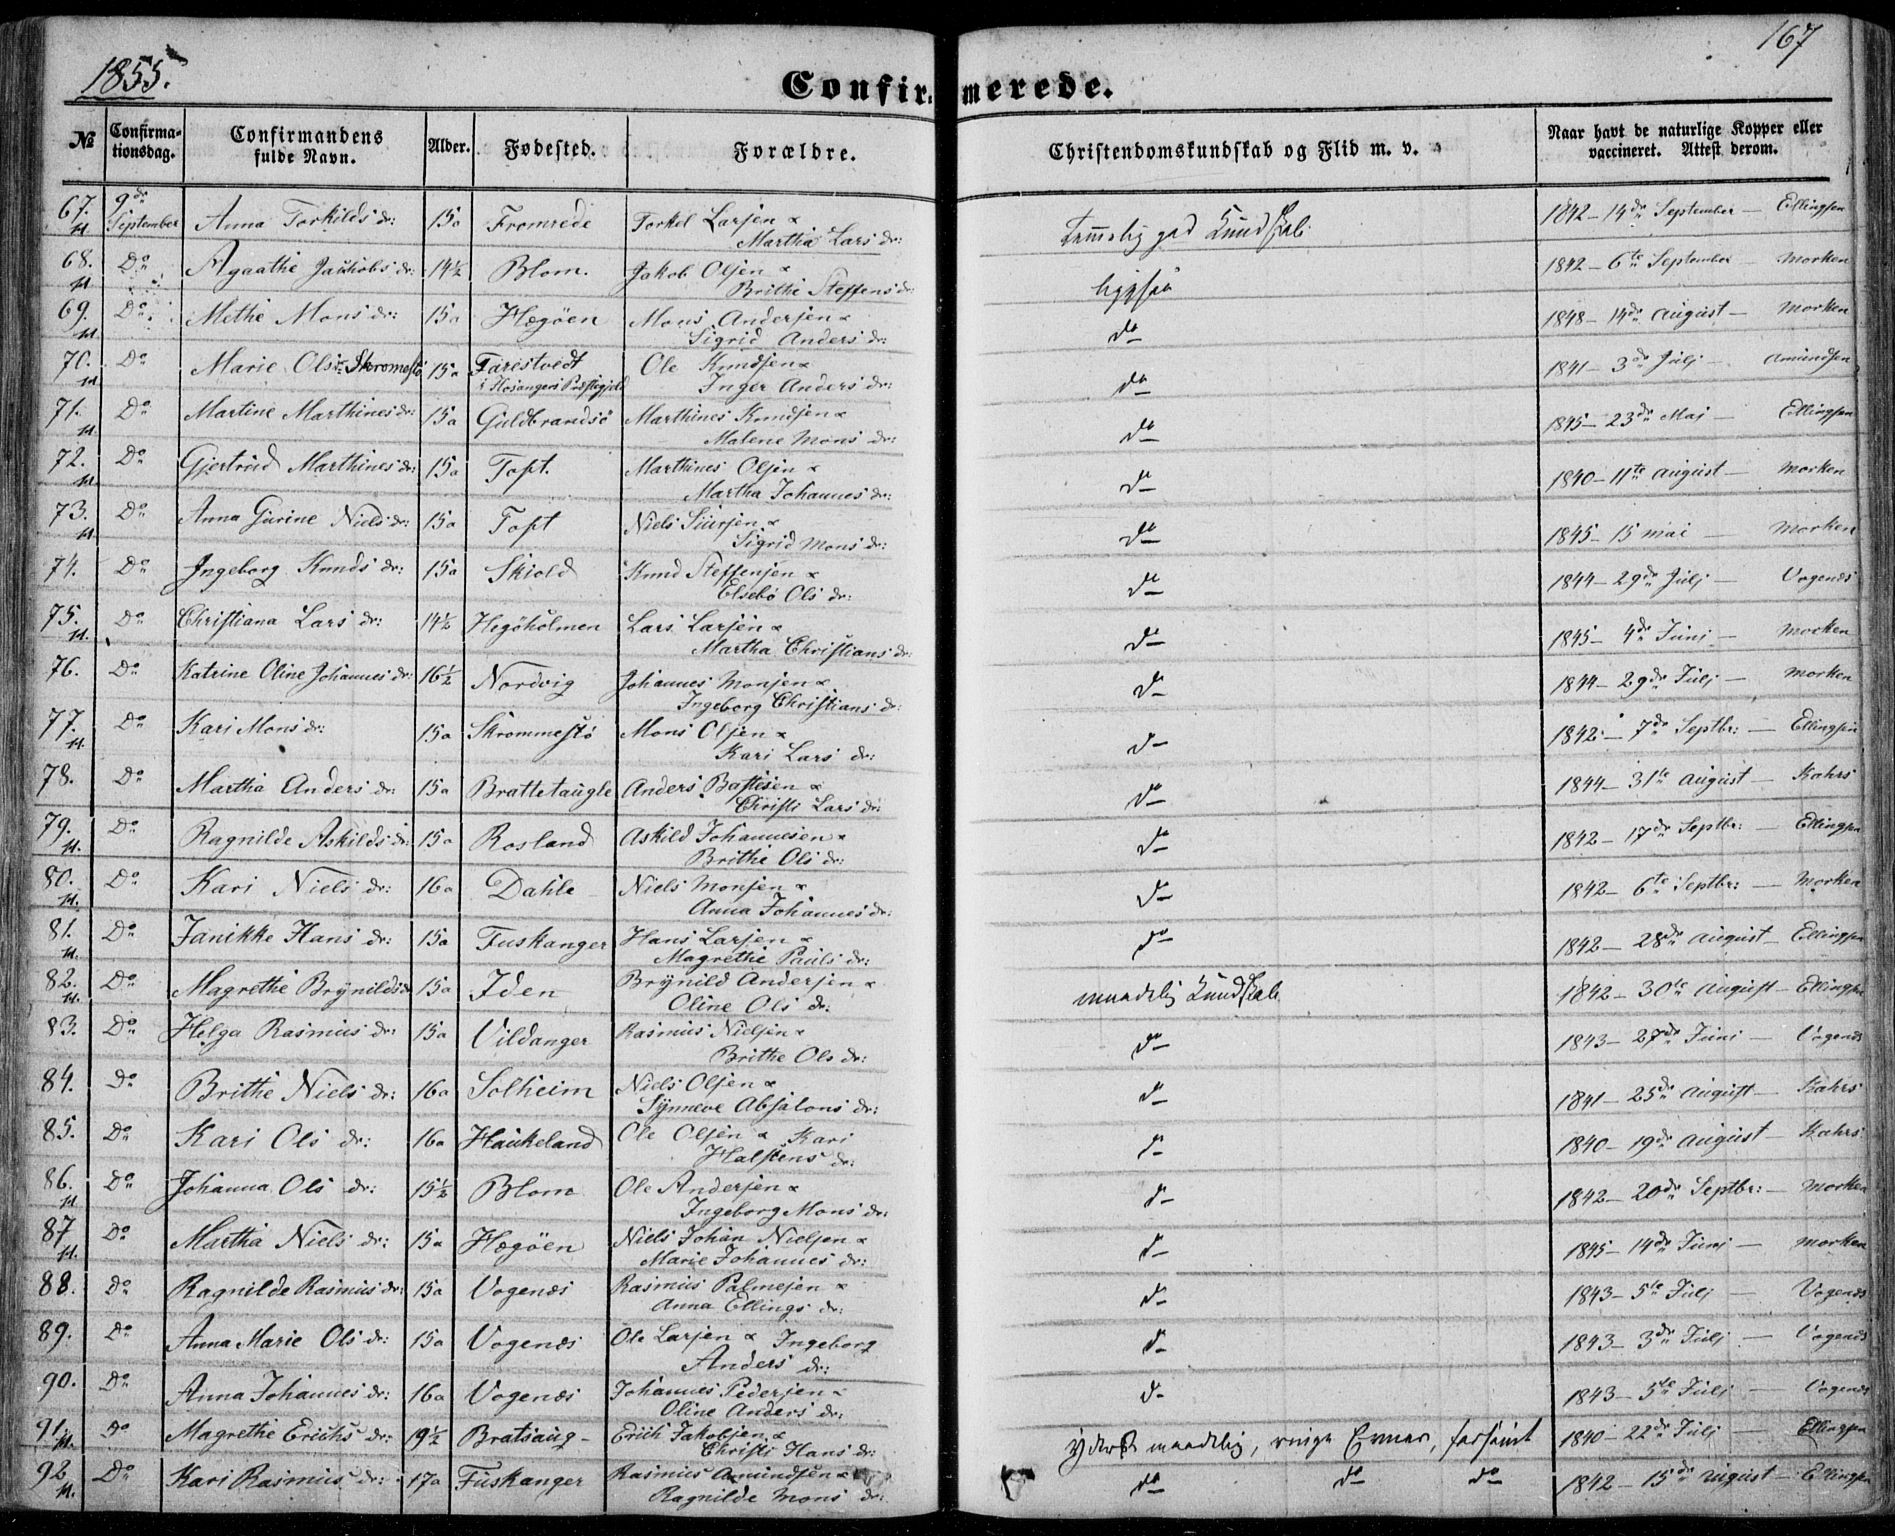 1855.
167
Confirmerede.
No Confirmationsdag. Confirmandens fulde Navn. Alder. Fødested. Forældre. Christendomskundskab og Flid m. v. Naar havt de naturlige Kopper eller vaccineret. Attest derom.
67. 9de September Anna Torkilds dr: 15a Fromrede Torkel Larsen & Martha Lars dr: temmelig god Kundskab 1842 – 14de September – Ellingsen
68. Do Agaathe Jachobs dr: 14½ Blom. Jakob Olsen & Brithe Steffens dr: ligesaa 1842 – 6te September – Morken
69. Do Methe Mons dr: 15a Hægöen Mons Andersen & Sigrid Anders dr: do 1848 – 14de August – Morken
70. Do Marie Ols dr Skromestø 15a Farestvedt i Hosangers Præstegjeld Ole Knudsen & Inger Anders dr: do 1841 – 3de Julj – Amundsen
71. Do Martine Marthines dr: 15a Guldbrandsö Marthines Knudsen & Malene Mons dr: do 1845 – 23de Maj – Ellingsen
72. Do Gjertrud Marthines dr: 15a Toft. Marthines Olsen & Martha Johannes dr: do 1840 – 11te August – Morken
73. Do Anna Gurine Niels dr: 15a Toft Niels Siursen & Sigrid Mons dr: do 1845 – 15 Mai – Morken
74. Do Ingeborg Knuds dr: 15a Skiold Knud Steffensen & Elsebö Ols dr: do 1844 – 29de Julj – Vogenæs
75. Do Christiana Lars dr: 14½ Hegöholmen Lars Larsen & Martha Christians dr: do 1845 – 4de Junj – Morken
76. Do Katrine Oline Johannes dr: 16½ Nordvig Johannes Monsen & Ingeborg Christians dr: do 1844 – 29de Julj – Morken
77. Do Kari Mons dr: 15a Skrommestö Mons Olsen & Kari Lars dr: do 1842 – 7de Septbr: – Ellingsen
78. Do Martha Anders dr: 15a Brattetaugle Anders Bastisen & Christi Lars dr: do 1844 – 31te August – Kahrs
79. Do Ragnilde Askilds dr: 15a Rosland Askild Johannesen & Brithe Ols dr: do 1842 – 17de Septbr: – Ellingsen
80. Do Kari Niels dr: 16a Dahle Niels Monsen & Anna Johannes dr: do 1842 – 6te Septbr: – Morken
81. Do Janikke Hans dr: 15a Fuskanger Hans Larsen & Magrethe Pauls dr: do 1842 – 28de August – Ellingsen
82. Do Magrethe Brÿnilds dr 15a Iden Brÿnild Andersen & Oline Ols dr: maadelig Kundskab 1842 – 30te August – Ellingsen
83. Do Helga Rasmus dr: 15a Vildanger Rasmus Nielsen & Brithe Ols dr: do 1843 – 27de Juni – Vogenæs
84. Do Brithe Niels dr: 16a Solheim Niels Olsen & Sÿnneve Absalons dr: do 1841 – 25de August – Kahrs
85. Do Kari Ols dr: 16a Haukeland Ole Olsen & Kari Halstens dr: do 1840 – 19de August – Kahrs
86. Do Johanna Ols dr: 15½ Blom Ole Andersen & Ingeborg Mons dr: do 1842 – 20de Septbr: – Morken
87 Do Martha Niels dr: 15a Hægöen Niels Johan Nielsen & Marie Johannes dr: do 1845 – 14de Junj – Morken
88. Do Ragnilde Rasmus dr: 15a Vogenæs Rasmus Palmesen & Anna Ellings dr: do 1843 – 5te Julj – Vogenæs
89. Do Anna Marie Ols dr: 15a Vogenæs Ole Larsen & Ingeborg Anders dr: do 1843 – 3de Julj – Vogenæs
90. Do Anna Johannes dr: 16a Vogenæs Johannes Pedersen & Oline Anders dr: do 1843 – 5te Julj – Vogenæs
91. Do Magrethe Erichs dr: 19½ Bratsaug – Erich Jakobsen & Christi Hans dr: yderst maadelig, ringe Evner, forsömt 1840 – 22de Julj – Ellingsen
92 Do Kari Rasmus dr: 17a Fuskanger Rasmus Amundsen & Ragnilde Mons dr: do do do 1842 – 15de August – Ellingsen